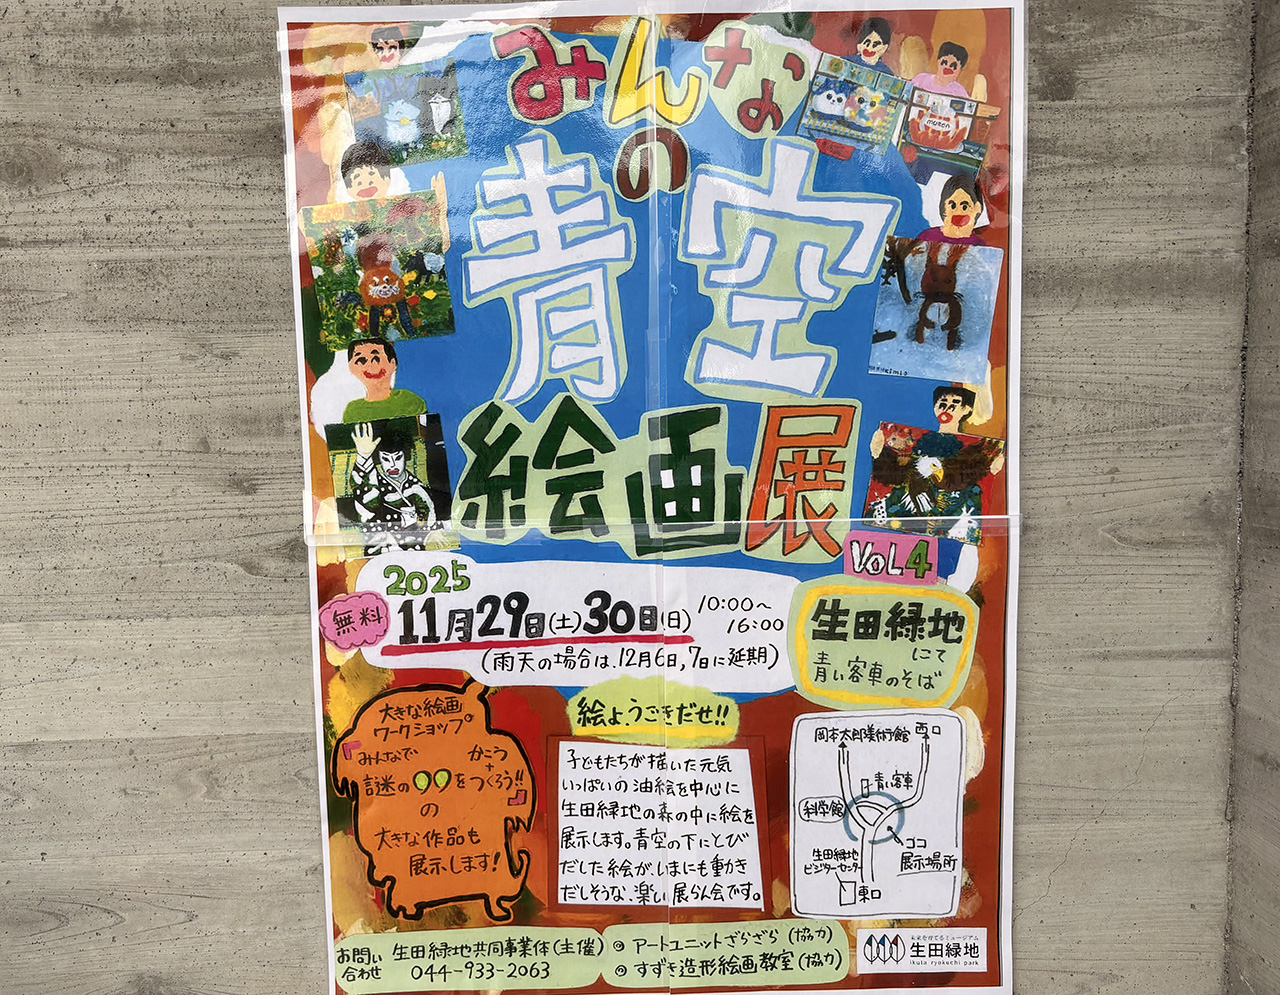 みんな
の
青空
絵画展
VOL4
2025
無料
11月29日(土)30日(日)
10:00〜
16:00
(雨天の場合は、12月6日,7日に延期)
生田緑地
にて
青い客車のそば
大きな絵画
ワークショップ。
「みんなで
かこう
+
謎の〇〇をつくろう!!」
の
大きな作品も
展示します!
絵よ、うごきだせ!!
子どもたちが描いた元気
いっぱいの油絵を中心に
生田緑地の森の中に絵を
展示します。青空の下にとび
だした絵が、いまにも動き
だしそうな、楽しい展らん会です。
岡本太郎美術館
西口
青い客車
科学館
ココ
展示場所
生田緑地
ビジターセンター
東口
お問い
合わせ
生田緑地共同事業体(主催)
044-933-2063
◎アートユニットざらざら(協力)
◎すずき造形絵画教室(協力)
生田緑地
ikuta ryokuchi park
muzen